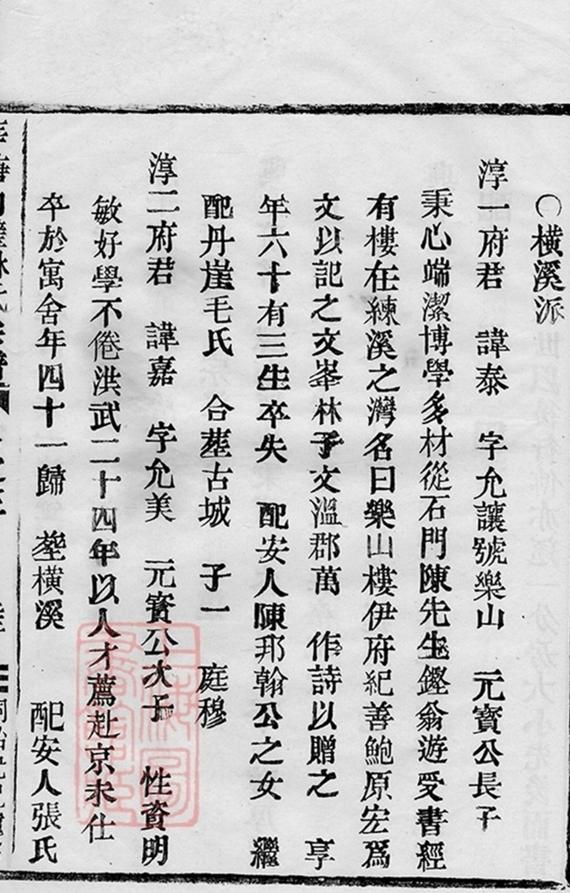 ○橫溪派
淳一府君 諱泰 字允讓號樂山 元寶公長子
秉心端潔博學多材從石門陳先生鏗翁遊受書經
有樓在練溪之灣名曰樂山樓伊府紀善鮑原宏爲
文以記之文峯林予文溫郡萬 作詩以贈之 享
年六十有三生卒失 配安人陳邦翰公之女 繼
配丹崖毛氏 合塟古城 子一 庭穆
淳二府君 諱嘉 字允美 元寶公次子 性資明
敏好學不倦洪武二十四年以人才薦赴京未仕
卒於寓舍年四十一歸 塟橫溪 配安人張氏